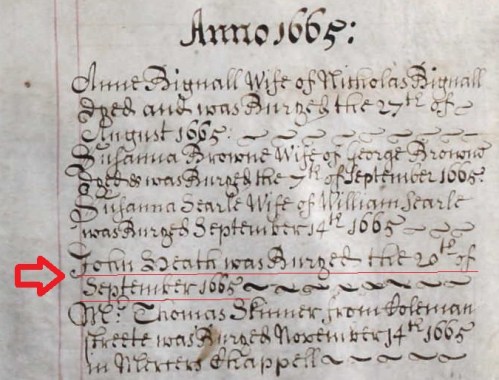 Anno 1665:
Anne Bignall Wife of Nicholas Bignall
dyed and was Buryed the 27th of
August 1665:
Susanna Browne Wife of George Browne
dyed & was Buryed the 7th of September 1665:
Susanna Searle Wife of William Searle
was Buryed September 14th 1665
John Heath was Buryed the 20th of
September 1665
Mr. Thomas Skinner from Coleman
streete was Buryed November 14th 1665
in Mercers Chappell